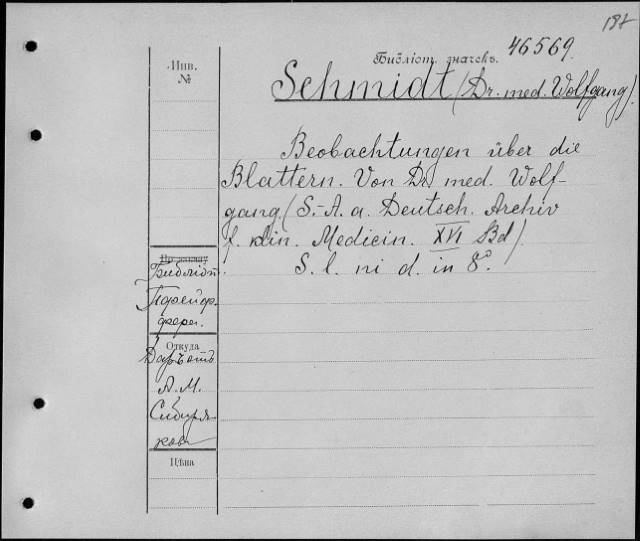 187
Библіот. значекъ. 46569.
Инв.
№
Schmidt (Dr. med. Wolfgang).
Beobachtungen über die
Blattern. Von Dr. med. Wolf-
gang (S.-A. a. Deutsch. Archiv
f. klin. Medicin. XVI Bd).
S. l. ni d. in 8°.
По каталогу
Библіот.
Откуда
Даръ отъ
А. М.
Сибиря-
кова
Цѣна